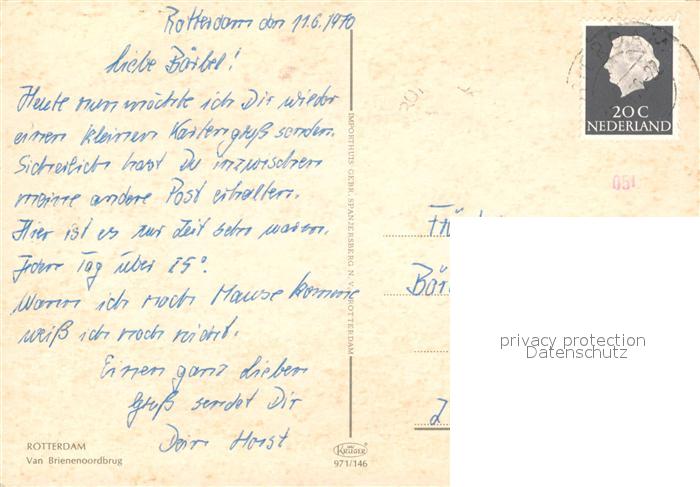 Rotterdam den 11.6.1970
Liebe Bärbel!
Heute nun möchte ich Dir wieder
einen kleinen Kartengruß senden.
Sicherlich hast Du inzwischen
meine andere Post erhalten.
Hier ist es zur Zeit sehr warm.
Jeden Tag über 25°.
Wann ich nach Hause komme
weiß ich noch nicht.
Einen ganz lieben
Gruß sendet Dir
Dein Horst
ROTTERDAM
Van Brienenoordbrug
IMPORTHUIS GEBR. SPANJERSBERG N.V. ROTTERDAM
KRÜGER
971/146
20 C
NEDERLAND
051
privacy protection
Datenschutz